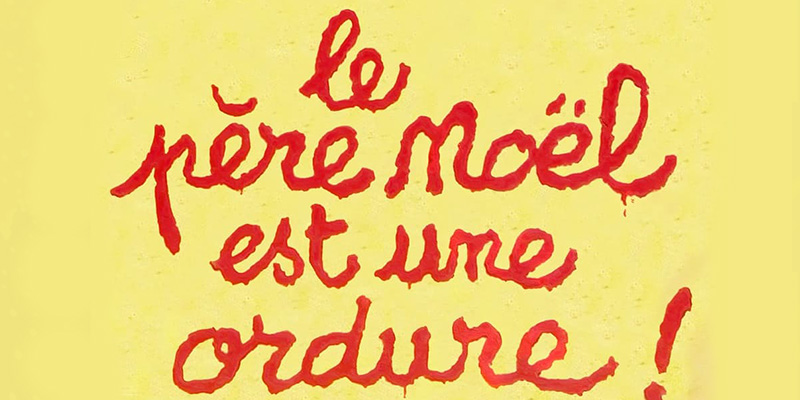 le
père Noël
est une
ordure !